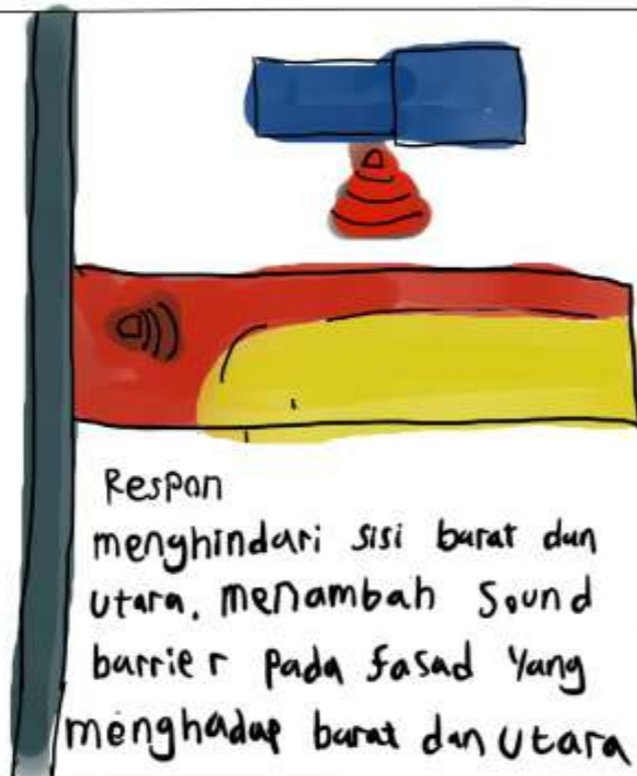 Respon
menghindari sisi barat dan
utara. menambah Sound
barrier pada fasad yang
menghadap barat dan utara